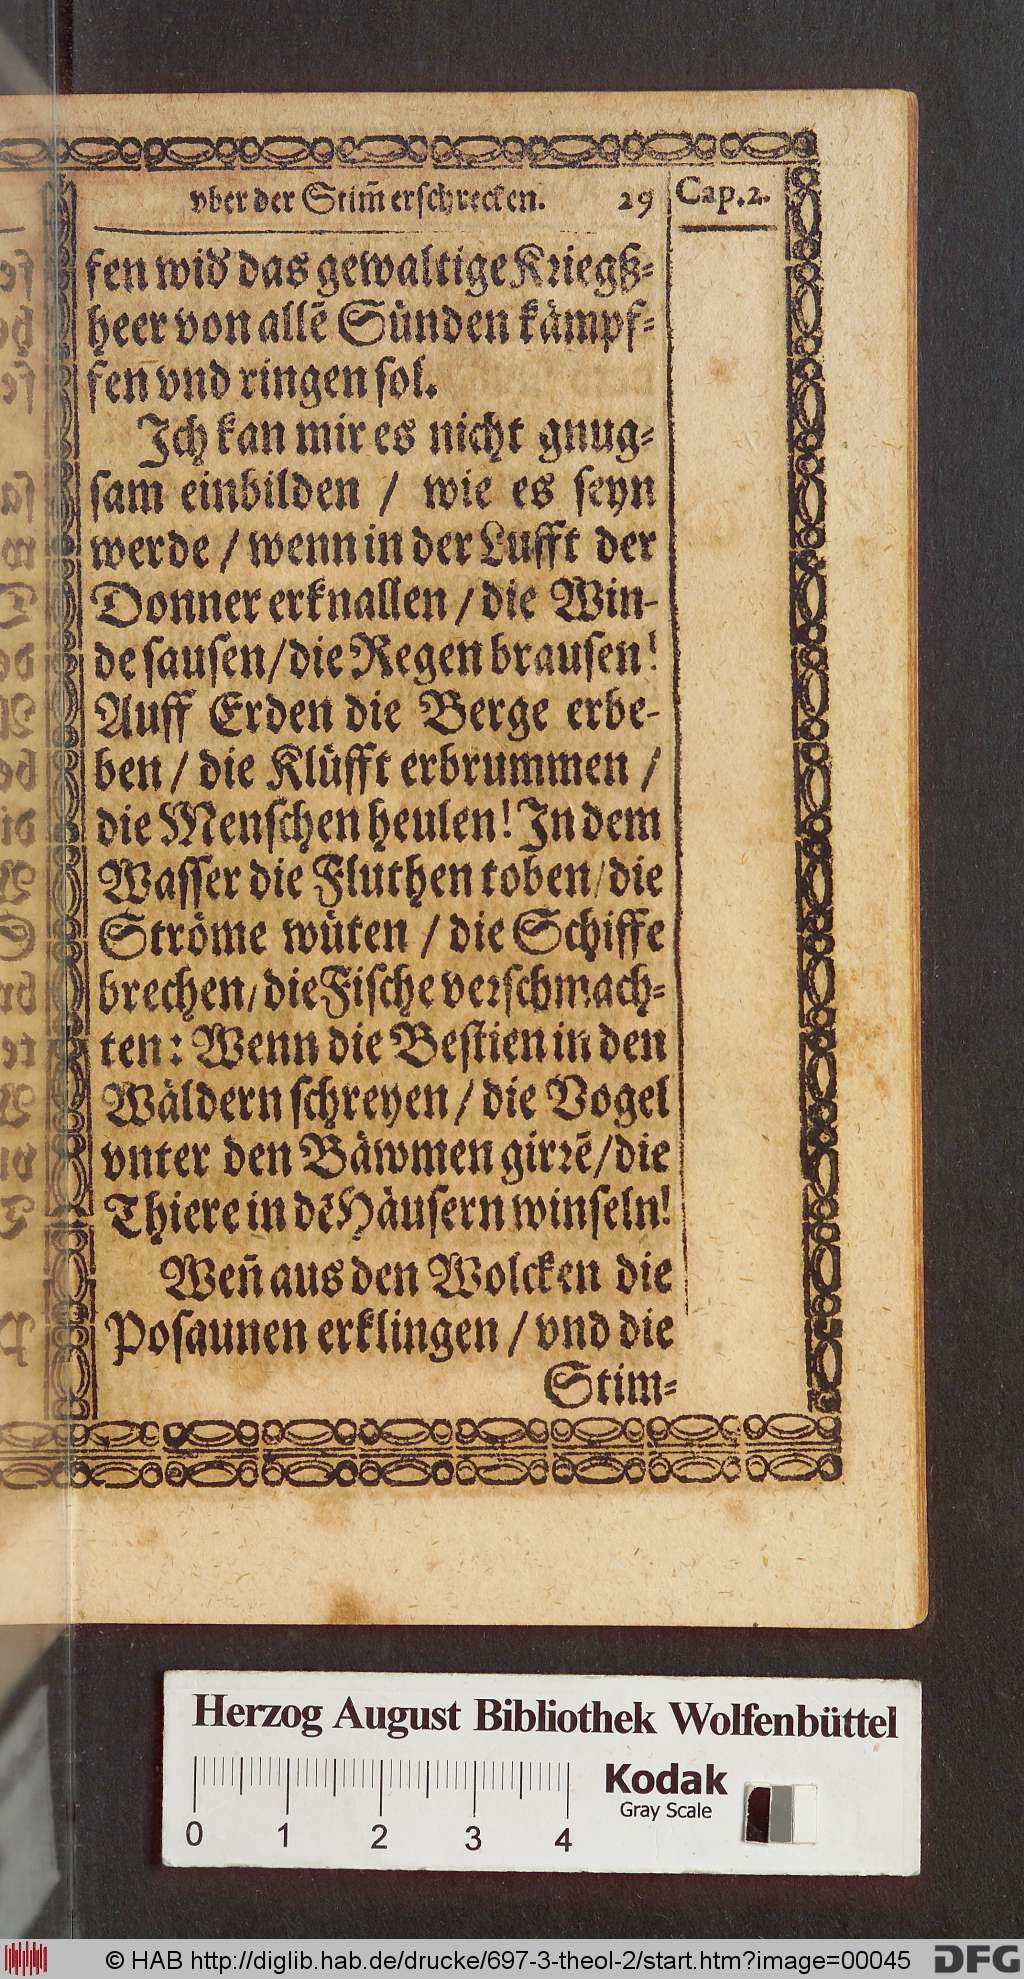 vber der Stim̃ erschrecken. 29 Cap. 2.
fen wid' das gewaltige Kriegß⸗
heer von allẽ Sünden kämpf⸗
fen vnd ringen sol.
Ich kan mir es nicht gnug⸗
sam einbilden / wie es seyn
werde / wenn in der Lufft der
Donner erknallen / die Win-
de sausen / die Regen brausen!
Auff Erden die Berge erbe-
ben / die Klüfft erbrummen /
die Menschen heulen! In dem
Wasser die Fluthen toben / die
Ströme wüten / die Schiffe
brechen / die Fische verschmach⸗
ten: Wenn die Bestien in den
Wäldern schreyen / die Vogel
vnter den Bäwmen girrẽ / die
Thiere in dẽ Häusern winseln!
Weñ aus den Wolcken die
Posaunen erklingen / vnd die
Stim⸗
Herzog August Bibliothek Wolfenbüttel
Kodak
Gray Scale
0 1 2 3 4
© HAB http://diglib.hab.de/drucke/697-3-theol-2/start.htm?image=00045
DFG